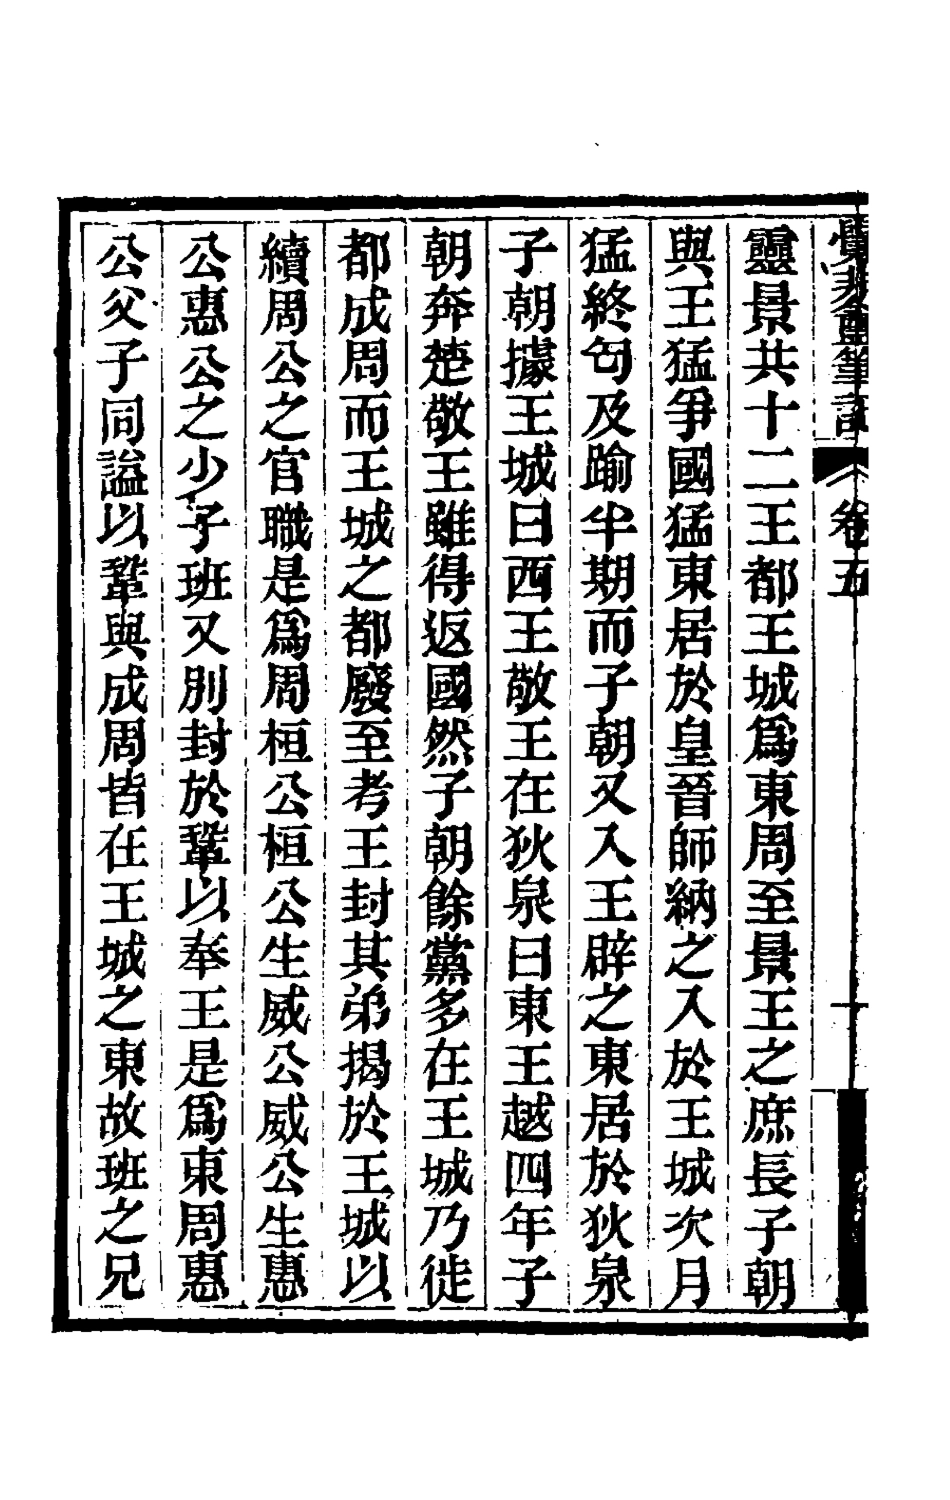 卷五
靈景共十二王都王城爲東周至景王之庶長子朝
與王猛爭國猛東居於皇晉師納之入於王城次月
猛終匄及踰半期而子朝又入王辟之東居於狄泉
子朝據王城曰西王敬王在狄泉曰東王越四年子
朝奔楚敬王雖得返國然子朝餘黨多在王城乃徙
都成周而王城之都廢至考王封其弟揭於王城以
續周公之官職是爲周桓公桓公生威公威公生惠
公惠公之少子班又別封於鞏以奉王是爲東周惠
公父子同謚以鞏與成周皆在王城之東故班之兄